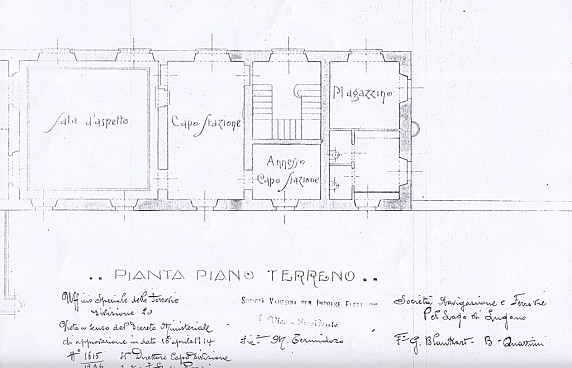 Sala d'aspetto
Capo Stazione
Magazzino
Annesso
Capo Stazione
.. PIANTA PIANO TERRENO ..
Ufficio Speciale delle Ferrovie
Divisione 2a
Visto a senso del Decreto Ministeriale
di approvazione in data 16 aprile 1914
N° 1615
Il Direttore Capo Divisione
SOCIETÀ VARESINA PER IMPRESE
Il Vice Presidente
M. Termidoro
Società Navigazione e Ferrovie
Pel Lago di Lugano
G. Blankart B. Quattrini